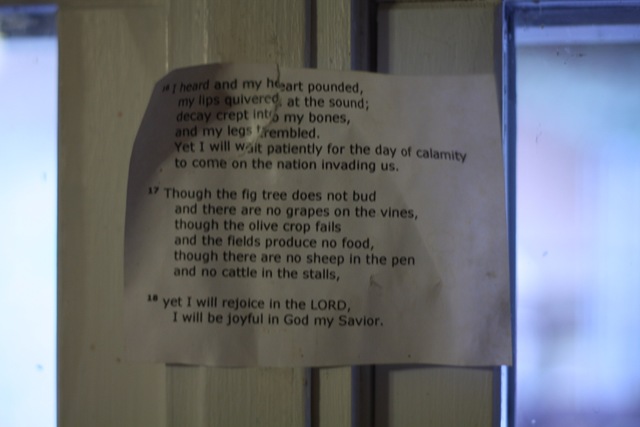 16 I heard and my heart pounded,
my lips quivered at the sound;
decay crept into my bones,
and my legs trembled.
Yet I will wait patiently for the day of calamity
to come on the nation invading us.
17 Though the fig tree does not bud
and there are no grapes on the vines,
though the olive crop fails
and the fields produce no food,
though there are no sheep in the pen
and no cattle in the stalls,
18 yet I will rejoice in the LORD,
I will be joyful in God my Savior.